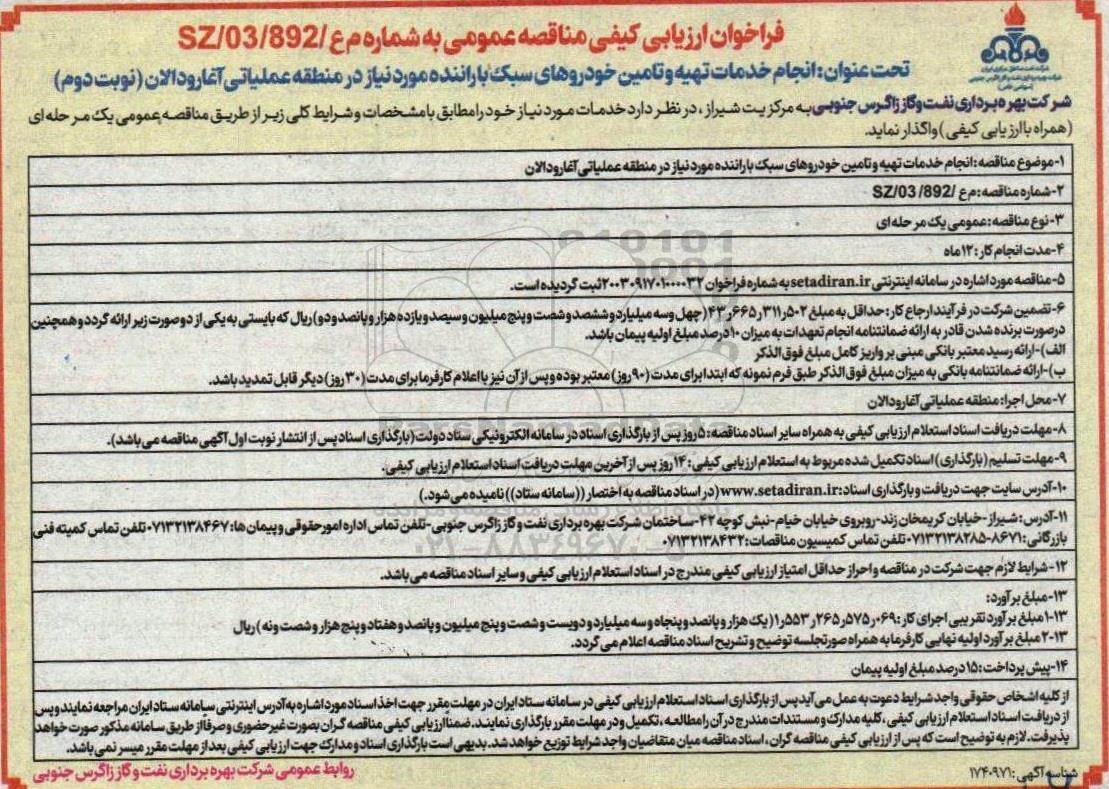 فراخوان ارزیابی کیفی مناقصه عمومی به شماره م ع /SZ/03/892
تحت عنوان: انجام خدمات تهیه و تامین خودروهای سبک با راننده مورد نیاز در منطقه عملیاتی آغار و دالان (نوبت دوم)
شرکت بهره برداری نفت و گاز زاگرس جنوبی به مرکزیت شیراز، در نظر دارد خدمات مورد نیاز خود را مطابق با مشخصات و شرایط کلی زیر از طریق مناقصه عمومی یک مرحله ای
(همراه با ارزیابی کیفی) واگذار نماید.
۱-موضوع مناقصه: انجام خدمات تهیه و تامین خودروهای سبک با راننده مورد نیاز در منطقه عملیاتی آغار و دالان
۲-شماره مناقصه: م ع /SZ/03/892
۳-نوع مناقصه: عمومی یک مرحله ای
۴-مدت انجام کار: ۱۲ ماه
۵-مناقصه مورد اشاره در سامانه اینترنتی setadiran.ir به شماره فراخوان ۲۰۰۳۰۹۱۷۰۱۰۰۰۰۳۲ ثبت گردیده است.
۶-تضمین شرکت در فرآیند ارجاع کار: حداقل به مبلغ ۴۳٫۶۶۵٫۳۱۱٫۵۰۲ (چهل و سه میلیارد و ششصد و شصت و پنج میلیون و سیصد و یازده هزار و پانصد و دو) ریال که بایستی به یکی از دو صورت زیر ارائه گردد و همچنین
درصورت برنده شدن قادر به ارائه ضمانتنامه انجام تعهدات به میزان ۱۰ درصد مبلغ اولیه پیمان باشد.
الف)-ارائه رسید معتبر بانکی مبنی بر واریز کامل مبلغ فوق الذکر
ب)-ارائه ضمانتنامه بانکی به میزان مبلغ فوق الذکر طبق فرم نمونه که ابتدا برای مدت (۹۰ روز) معتبر بوده و پس از آن نیز با اعلام کارفرما برای مدت (۳۰ روز) دیگر قابل تمدید باشد.
۷-محل اجرا: منطقه عملیاتی آغار و دالان
۸-مهلت دریافت اسناد استعلام ارزیابی کیفی به همراه سایر اسناد مناقصه: ۵ روز پس از بارگذاری اسناد در سامانه الکترونیکی ستاد دولت (بارگذاری اسناد پس از انتشار نوبت اول آگهی مناقصه می باشد).
۹-مهلت تسلیم (بارگذاری) اسناد تکمیل شده مربوط به استعلام ارزیابی کیفی: ۱۴ روز پس از آخرین مهلت دریافت اسناد استعلام ارزیابی کیفی.
۱۰-آدرس سایت جهت دریافت و بارگذاری اسناد: www.setadiran.ir (در اسناد مناقصه به اختصار ((سامانه ستاد)) نامیده می شود.)
۱۱-آدرس: شیراز - خیابان کریمخان زند-روبروی خیابان خیام-نبش کوچه ۴۲-ساختمان شرکت بهره برداری نفت و گاز زاگرس جنوبی-تلفن تماس اداره امور حقوقی و پیمان ها: ۰۷۱۳۲۱۳۸۴۶۷ تلفن تماس کمیته فنی
بازرگانی: ۸۶۷۱-۰۷۱۳۲۱۳۸۲۸۵ تلفن تماس کمیسیون مناقصات: ۰۷۱۳۲۱۳۸۴۳۲
۱۲-شرایط لازم جهت شرکت در مناقصه و احراز حداقل امتیاز ارزیابی کیفی مندرج در اسناد استعلام ارزیابی کیفی و سایر اسناد مناقصه می باشد.
۱۳-مبلغ برآورد:
۱۳-۱ مبلغ برآورد تقریبی اجرای کار: ۱٫۵۵۳٫۲۶۵٫۵۷۵٫۰۶۹ (یک هزار و پانصد و پنجاه و سه میلیارد و دویست و شصت و پنج میلیون و پانصد و هفتاد و پنج هزار و شصت و نه) ریال
۱۳-۲ مبلغ برآورد اولیه نهایی کارفرما به همراه صورتجلسه توضیح و تشریح اسناد مناقصه اعلام می گردد.
۱۴-پیش پرداخت: ۱۵ درصد مبلغ اولیه پیمان
از کلیه اشخاص حقوقی واجد شرایط دعوت به عمل می آید پس از بارگذاری اسناد استعلام ارزیابی کیفی در سامانه ستاد ایران در مهلت مقرر جهت اخذ اسناد مورد اشاره به آدرس اینترنتی سامانه ستاد ایران مراجعه نمایند و پس
از دریافت اسناد استعلام ارزیابی کیفی، کلیه مدارک و مستندات مندرج در آن را مطالعه، تکمیل و در مهلت مقرر بارگذاری نمایند. ضمنا ارزیابی کیفی مناقصه گران بصورت غیر حضوری و صرفا از طریق سامانه مذکور صورت خواهد
پذیرفت. لازم به توضیح است که پس از ارزیابی کیفی مناقصه گران، اسناد مناقصه میان متقاضیان واجد شرایط توزیع خواهد شد. بدیهی است بارگذاری اسناد و مدارک جهت ارزیابی کیفی بعد از مهلت مقرر میسر نمی باشد.
شناسه آگهی: ۱۷۴۰۹۷۱
روابط عمومی شرکت بهره برداری نفت و گاز زاگرس جنوبی
ParsNamadData
پایگاه اطلاع رسانی مناقصه و مزایده
۰۲۱-۸۸۳۴۹۶۷۰-۵